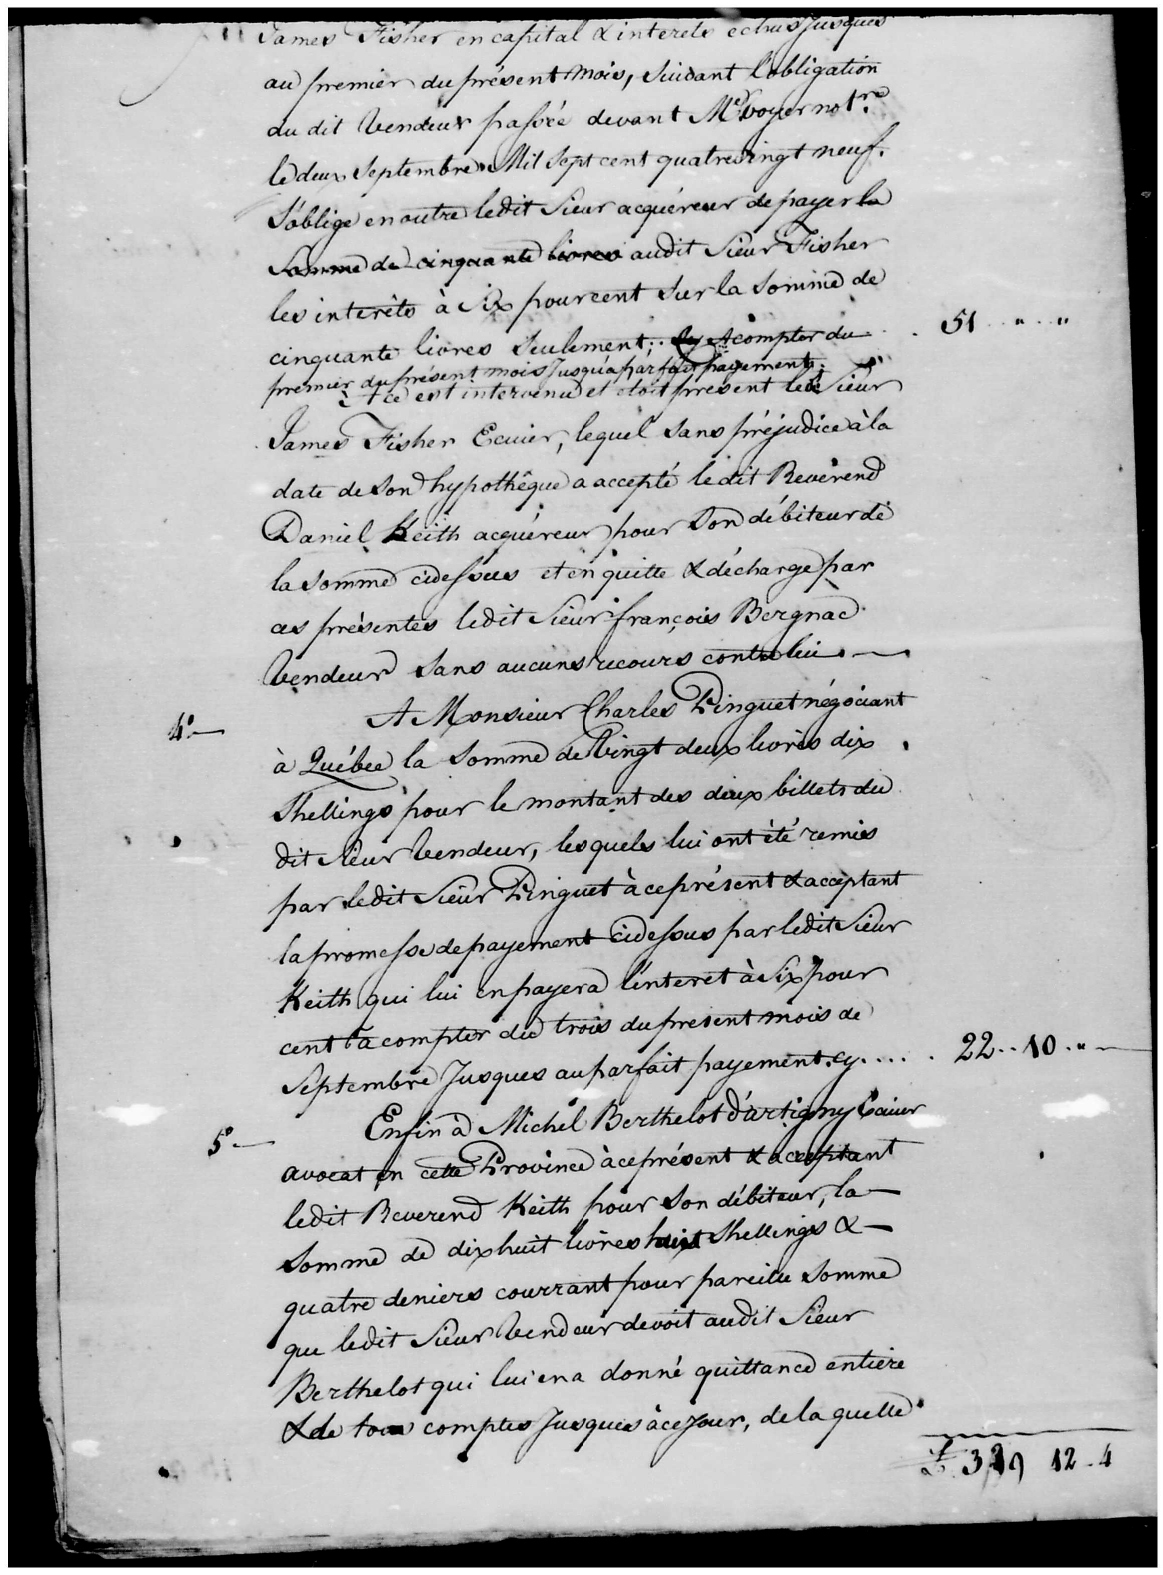 James Fisher en capital & interets echus Jusques
au premier du présent mois, suivant l'obligation
du dit Vendeur passée devant Me Voyer notre
le deux Septembre Mil Sept cent quatre vingt neuf.
S'oblige en outre ledit Sieur acquéreur de payer la
Somme de cinquante livres audit Sieur Fisher
les interêts à Six pourcent sur la Somme de
cinquante livres Seulement; Acompter du 51 .. " .. "
premier du présent mois Jusqu'a parfait payement.
à ce est intervenu et etoit présent led Sieur
James Fisher Ecuier, lequel sans préjudice à la
date de son hypothêque a accepté le dit Reverend
Daniel Keith acquéreur pour son débiteur de
la somme cidessus et en quitte & décharge par
ces présentes ledit Sieur françois Bergnac
Vendeur sans aucuns recours contre lui. —
4° — A Monsieur Charles Pinguet négociant
à Québec la somme de Vingt deux livres dix
Shellings pour le montant des deux billets du
dit Sieur Vendeur, lesquels lui ont été remis
par ledit Sieur Pinguet à ce présent & acceptant
la promesse de payement cidessus par ledit Sieur
Keith qui lui en payera l'interet à Six pour
cent a compter du trois du present mois de
Septembre Jusques au parfait payement. cy.... 22 .. 10 .. " —
5° — Enfin à Michel Berthelot d'artigny Ecuier
avocat en cette Province à ce présent & acceptant
ledit Reverend Keith pour son débiteur, la —
somme de dix huit livres huit Shellings & —
quatre deniers courrant pour pareille somme
que ledit Sieur Vendeur devoit audit Sieur
Berthelot qui lui en a donné quittance entière
& de tous comptes Jusques à ce Jour, de la quelle
12 . 4